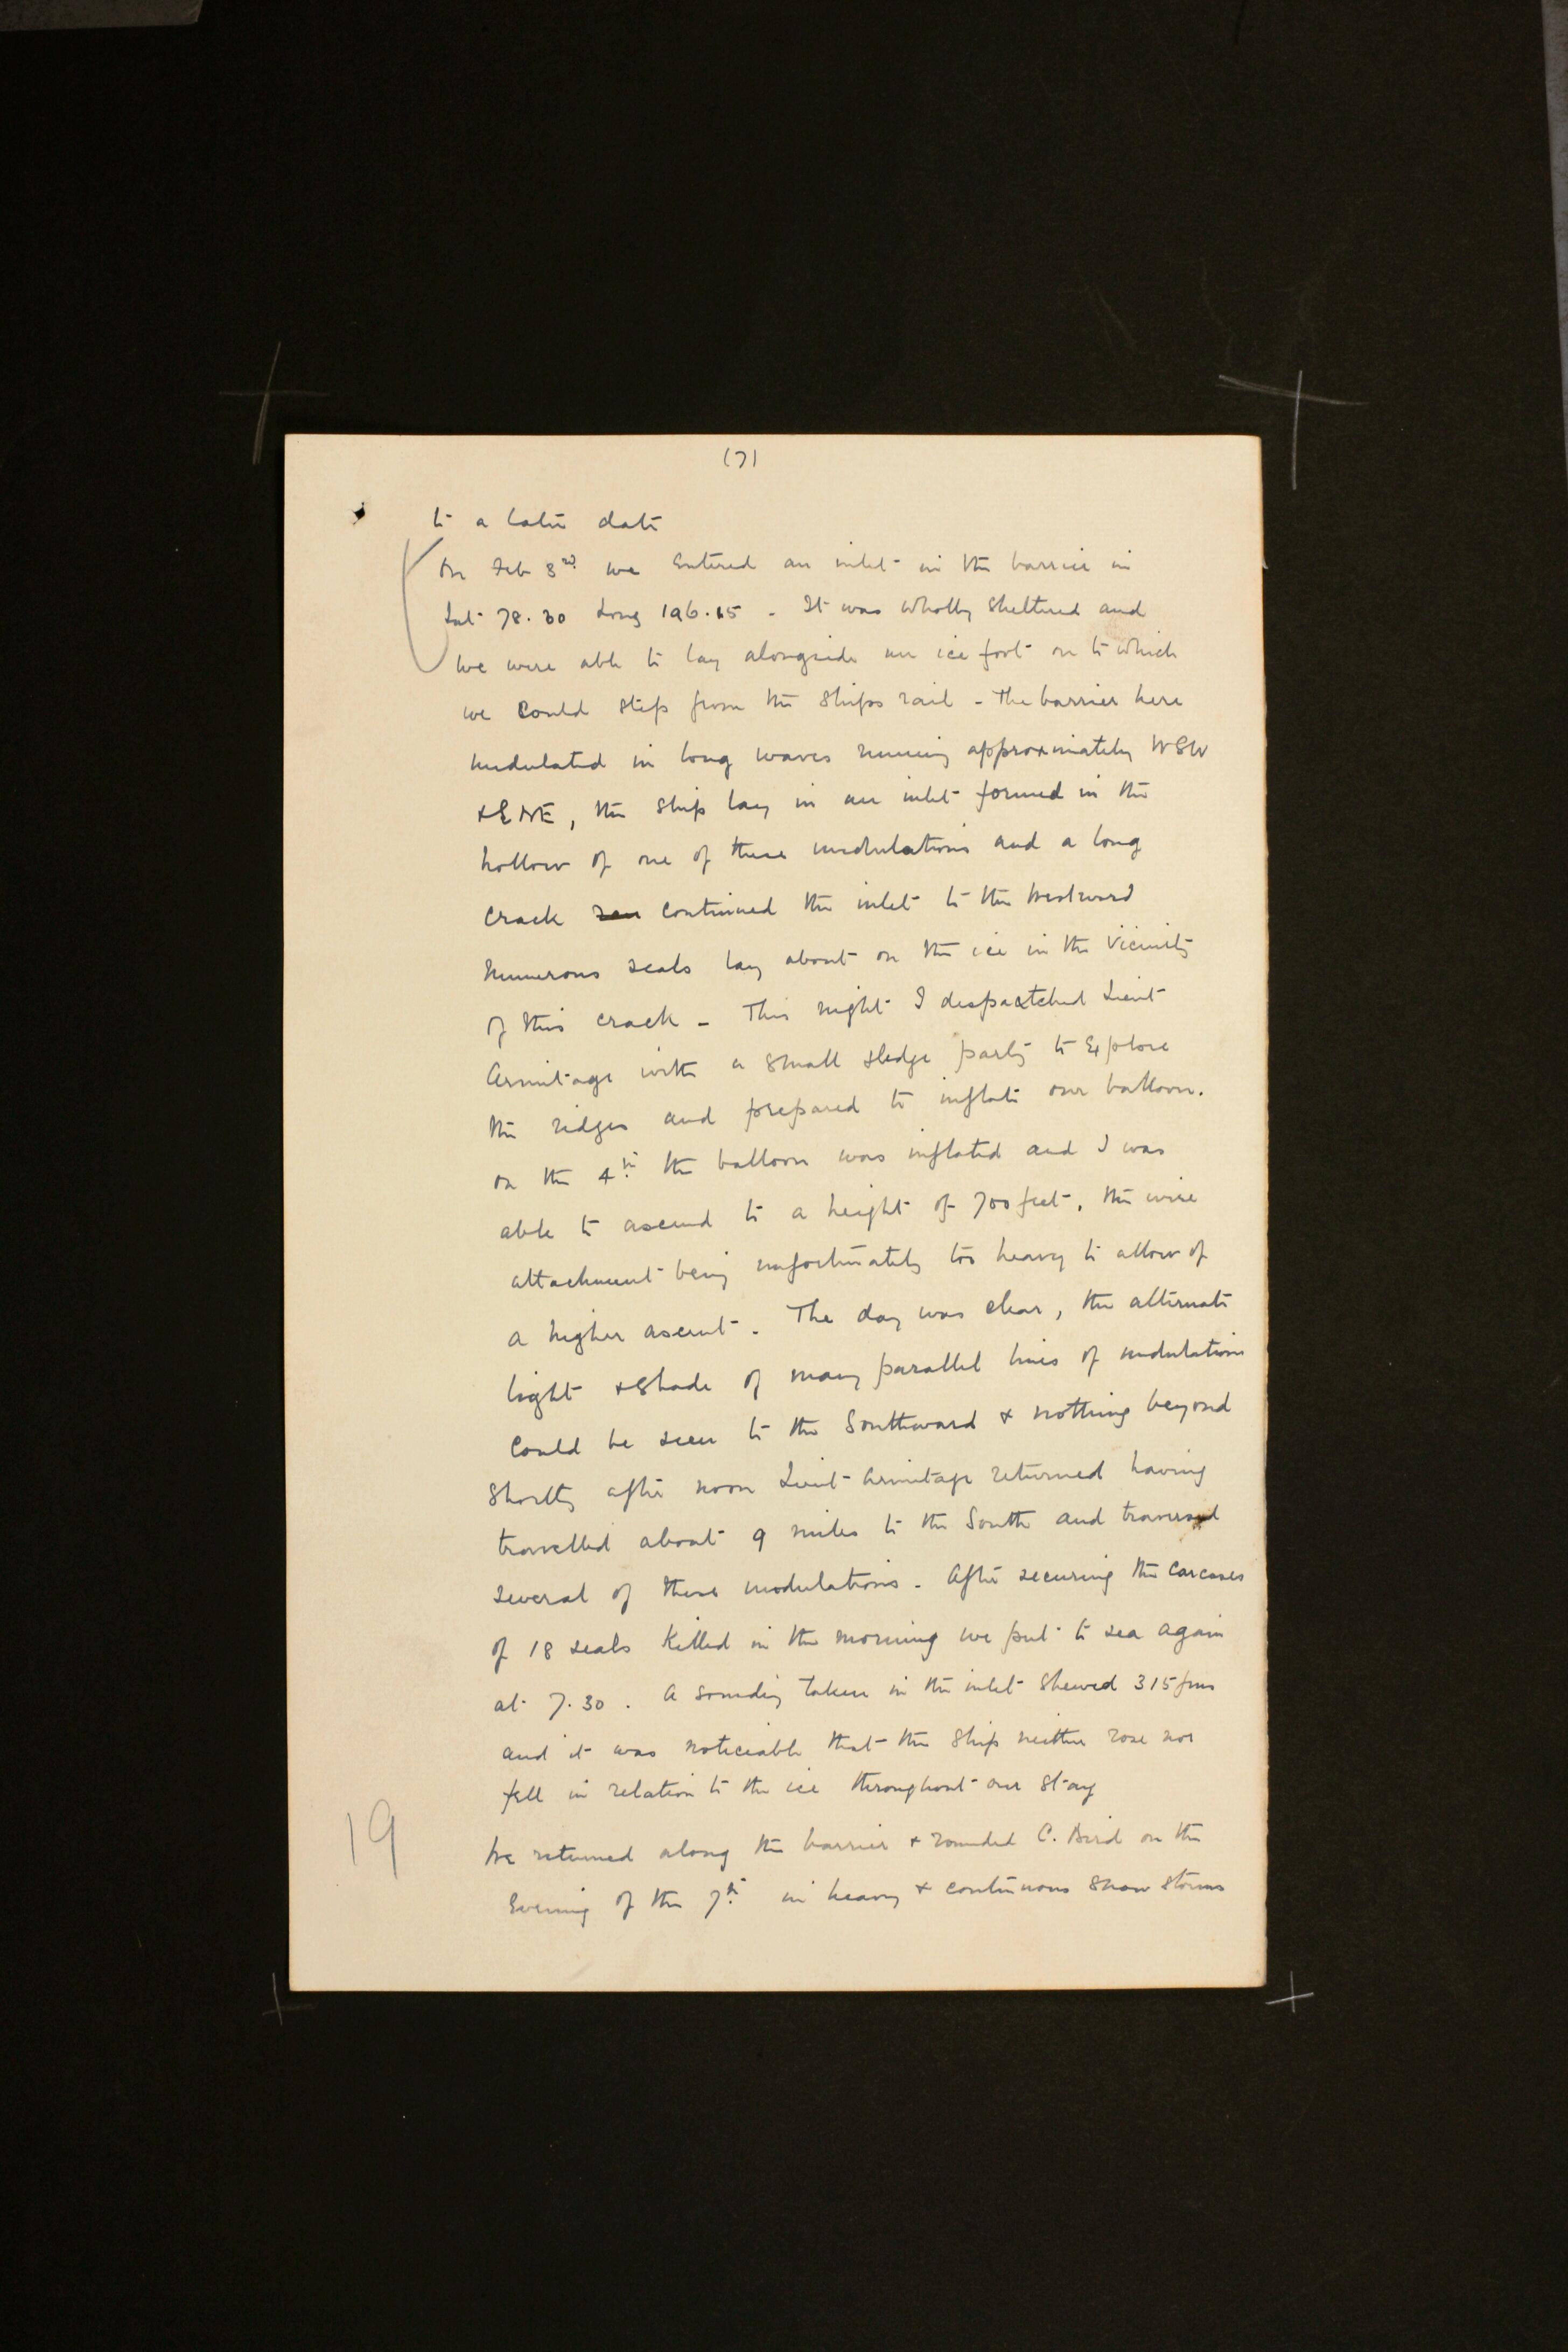 (7)
to a later date
On Feb 3rd we entered an inlet in the barrier in
Lat 78.30 Long 196.15 - It was wholly sheltered and
we were able to lay alongside an ice foot on to which
we could step from the ships rail - The barrier here
undulated in long waves running approximately WSW
& ENE, the ship lay in an inlet formed in the
hollow of one of these undulations and a long
crack ran continued the inlet to the westward
Numerous seals lay about on the ice in the vicinity
of this crack - This night I despatched Lieut
Armitage with a small sledge party to explore
the ridges and prepared to inflate our balloon.
On the 4th the balloon was inflated and I was
able to ascend to a height of 700 feet, the wire
attachment being unfortunately too heavy to allow of
a higher ascent. The day was clear, the alternate
light & shade of many parallel lines of undulations
could be seen to the Southward & nothing beyond
Shortly after noon Lieut Armitage returned having
travelled about 9 miles to the South and traversed
several of these undulations - After securing the carcases
of 18 seals killed in the morning we put to sea again
at 7.30. A sounding taken in the inlet shewed 315 fms
and it was noticeable that the ship neither rose nor
fell in relation to the ice throughout our stay
We returned along the barrier & rounded C. Bird on the
evening of the 7th in heavy & continuous snow storms
19